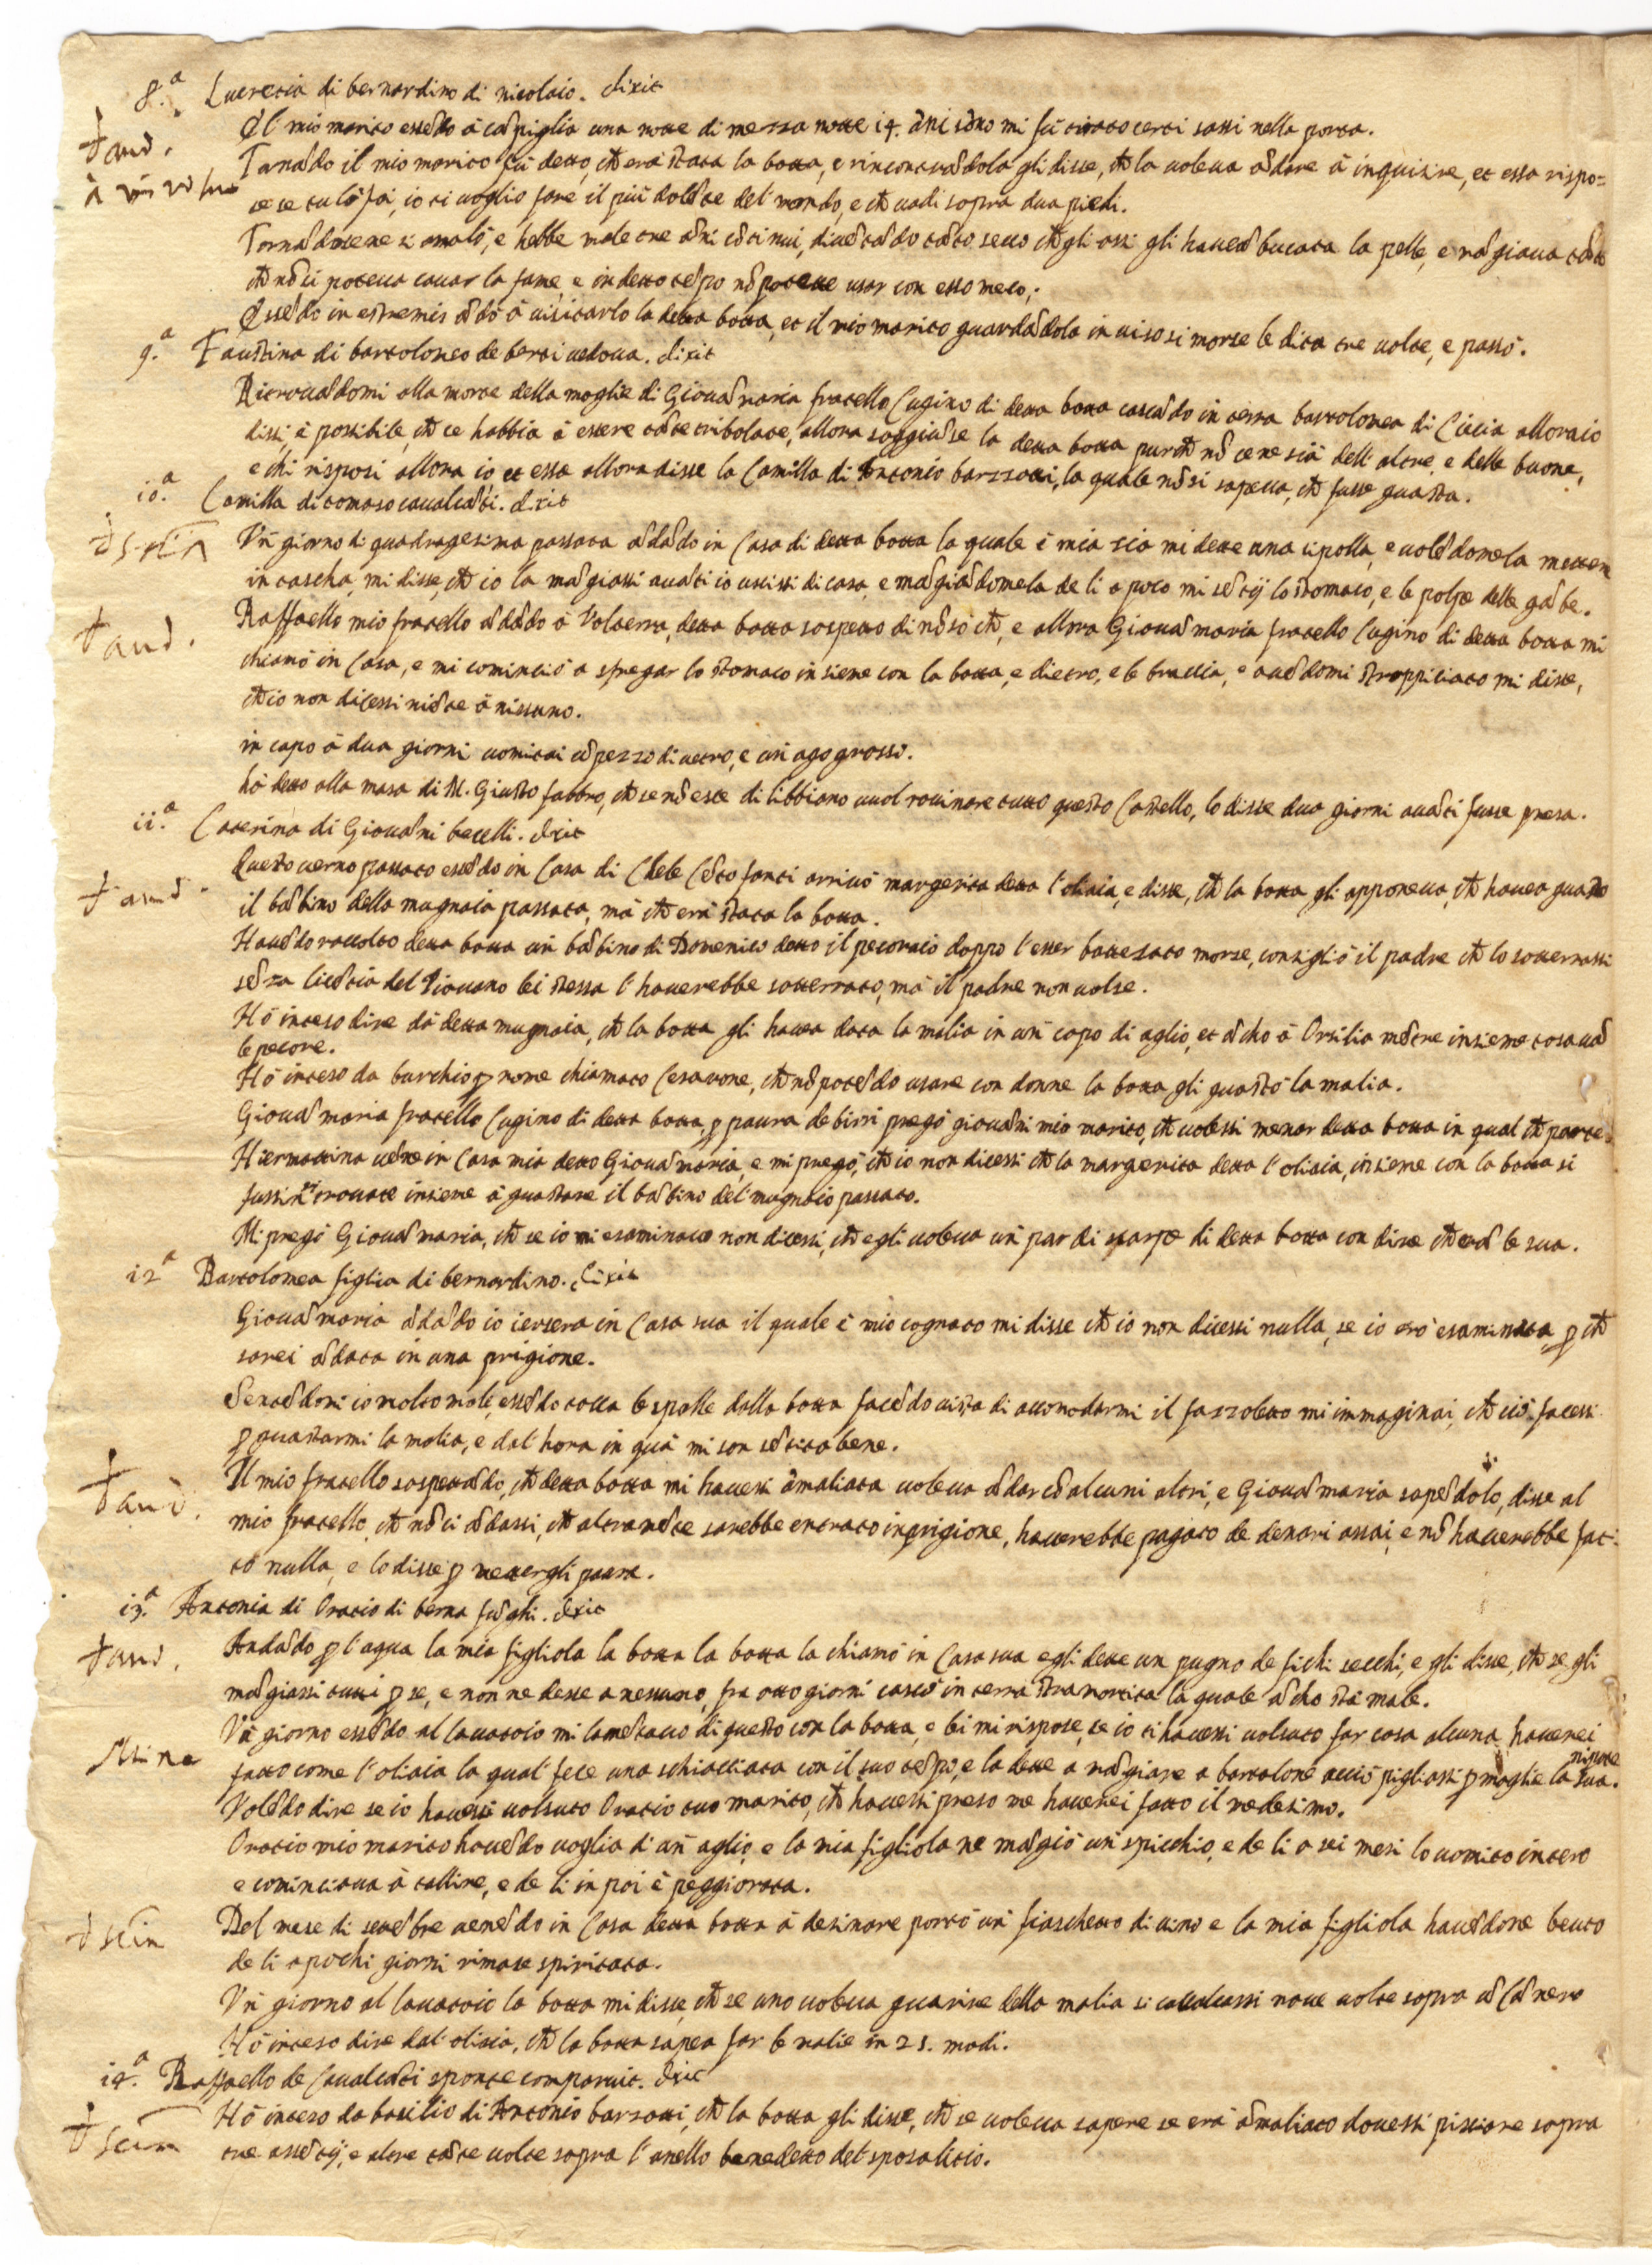 8.ª Lucretia di bernardino di nicolaio. dixit
El mio marito essẽdo à cãpiglia una notte di mezza notte 14. ãni sõno mi fù tirato certi sassi nella porta.
t aud.
Tornãdo il mio marito fù detto, ch̃ era stata la botta, e rincontrãdola gli disse, ch̃ la voleva ãdare à inquisire, et essa rispo=
se se tu lo fai, io ti voglio fare il più dolẽte del mondo, e ch̃ vadi sopra dua piedi.
Tornãdosene si amalò, e hebbe male tre ãni cõtinui, divẽtãdo tãto secco ch̃ gli ossi gli haveã bucata la pelle, e mãgiava tãto
ch̃ nõ si poteva cavar la fame, e in detto tẽpo nõ potette usar con esso meco;
Essẽdo in estremis ãdò à visitarlo la detta botta, et il mio marito guardãdola in viso si morse le dita tre volte, e passò.
9.ª Faustina di bartolomeo de berti vedova. dixit
Ritrovãdomi alla morte della moglie di Giovãmaria fratello Cugino di detta botta cascãdo in terra bartolomea di Ciccia alloraio
dissi, è possibile, ch̃ ce habbia à essere tãte tribolate, allora soggiũse la detta botta purch̃ nõ ce ne sia dell'altre, e delle buone,
e chi risposi allora io et essa allora disse la Camilla di Antonio barzzotti, la quale nõ si sapeva, ch̃ fusse guasta.
10.ª Camilla di tomaso cavalcãti. dixit
Vñ giorno di quadragesima passata ãdãdo in Casa di detta botta la quale è mia zia mi dette una cipolla, e volẽdomela mettere
in tascha, mi disse, ch̃ io la mãgiassi avãti io uscissi di casa, e mãgiãdomela de li a poco mi sẽtij lo stomaco, e le polpe delle gãbe.
t aud.
Raffaello mio fratello ãdãdo à Volterra, detta botta sospettò di nõ sò ch̃, e allora Giovãmaria fratello Cugino di detta botta mi
chiamò in Casa, e mi cominciò a fregar lo stomaco insieme con la botta, e dietro, e le braccia, e avẽdomi stroppicciato mi disse,
ch̃ io non dicessi niẽte à nissuno.
in capo à dua giorni vomitai ũ pezzo di vetro, e uñ ago grosso.
hà detto alla masa di M. Giusto fabbro, ch̃ se nõ esce di libbiano vuol rovinare tutto questo Castello, lo disse dua giorni avãti fusse presa.
11.ª Caterina di Giovãni becelli. dixit
Questo verno passato essẽdo in Casa di Chele Cristofanti arrivò margerita detta l'oliaia, e disse, ch̃ la botta gli apponeva, ch̃ havea guasto
il bãbino della mugnaia passata, mà ch̃ era stata la botta.
Havẽdo raccolto detta botta uñ bãbino di Domenico detto il pecoraio doppo l'esser battezato morse, consigliò il padre ch̃ lo sotterrassi
sẽza licẽtia del Piovano lei stessa l'haverebbe sotterrato, mà il padre non volse.
Hò inteso dire dà detta mugnaia, ch̃ la botta gli havea data la malia in uñ capo di aglio, et ãcho à Orsilia mẽtre insieme tosavã
le pecore.
Hò inteso da burchio p nome chiamato Cesarone, ch̃ nõ potẽdo usare con donne la botta gli guastò la malia.
Giovãmaria fratello Cugino di detta botta, p paura de birri pregò giovãni mio marito, ch̃ volessi menar detta botta in qual ch̃ parte.
Hiermattina vẽne in Casa mia detto Giovãmaria, e mi pregò, ch̃ io non dicessi ch̃ la margerita detta l'oliaia, insieme con la botta si
fussin ritrovate insieme à guastare il bãbino del mugnaio passato.
Mi pregò Giovãmaria, ch̃ se io mi esaminavo non dicessi, ch̃ egli voleva uñ par di scarpe di detta botta con dire ch̃ erã le sua.
12.ª Bartolomea figlia di bernardino. dixit
Giovãmaria ãdãdo io iersera in Casa sua il quale è mio cognato mi disse ch̃ io non dicessi nulla, se io ero esaminata, p ch̃
sarei ãdata in una prigione.
Sentẽdomi io molto male, essẽdo tocca le spalle dalla botta facẽdo vista di accomodarmi il fazzoletto mi immaginai, ch̃ ciò facessi
p guastarmi la malia, e dal hora in quà mi son sẽtita bene.
t aud.
Il mio fratello sospettãdo, ch̃ detta botta mi havessi ãmaliata voleva ãdar cõ alcuni altri, e Giovãmaria sapẽdolo, disse al
mio fratello, ch̃ nõ ci ãdassi, ch̃ altramẽte sarebbe entrato in prigione, haverebbe pagato de denari assai, e nõ haverebbe fat:
to nulla, e lo disse p mettergli paura.
13.ª Antonia di Oratio di berna fũghi. dixit
t aud.
Andãdo p l'aqua la mia figliola la botta la botta la chiamò in Casa sua e gli dette un pugno de fichi secchi, e gli disse, ch̃ se gli
mãgiassi tutti p se, e non ne desse a nessuno, fra otto giorni cascò in terra stramortita la quale ãcho stà male.
Vñ giorno essẽdo al lavatoio mi lamẽtavo di questo con la botta, e lei mi rispose, se io ti havessi volsuto far cosa alcuna haverei
fatto come l'oliaia la qual fece una schiacciata con il suo tẽpo, e la dette a mãgiare a bartolone acciò pigliassi p moglie la sua nipote.
Volẽdo dire se io havessi volsuto Oratio tuo marito, ch̃ havessi preso me haverei fatto il medesimo.
Oratio mio marito havẽdo voglia di uñ aglio, e la mia figliola ne mãgiò uñ spicchio, e de li a sei mesi lo vomitò intero
e cominciava à tallire, e de li in poi è peggiorata.
Del mese di settẽbre venẽdo in Casa detta botta à desinare portò uñ fiaschetto di vino e la mia figliola havẽdone beuto
de li a pochi giorni rimase spiritata.
Vñ giorno al lavatoio la botta mi disse, ch̃ se uno voleva guarire della malia si cavalcassi nove volte sopra ũ Cã nero
Hò inteso dire dal oliaia, ch̃ la botta sapea far le malie in 25. modi.
14.ª Raffaello de Cavalcãti sponte comparuit. dixit
Hò inteso da basilio di Antonio barzotti, ch̃ la botta gli disse, ch̃ se voleva sapere se era ãmaliato dovessi pisciare sopra
tre assẽtij, e altre tãte volte sopra l'anello benedetto del sposalitio.